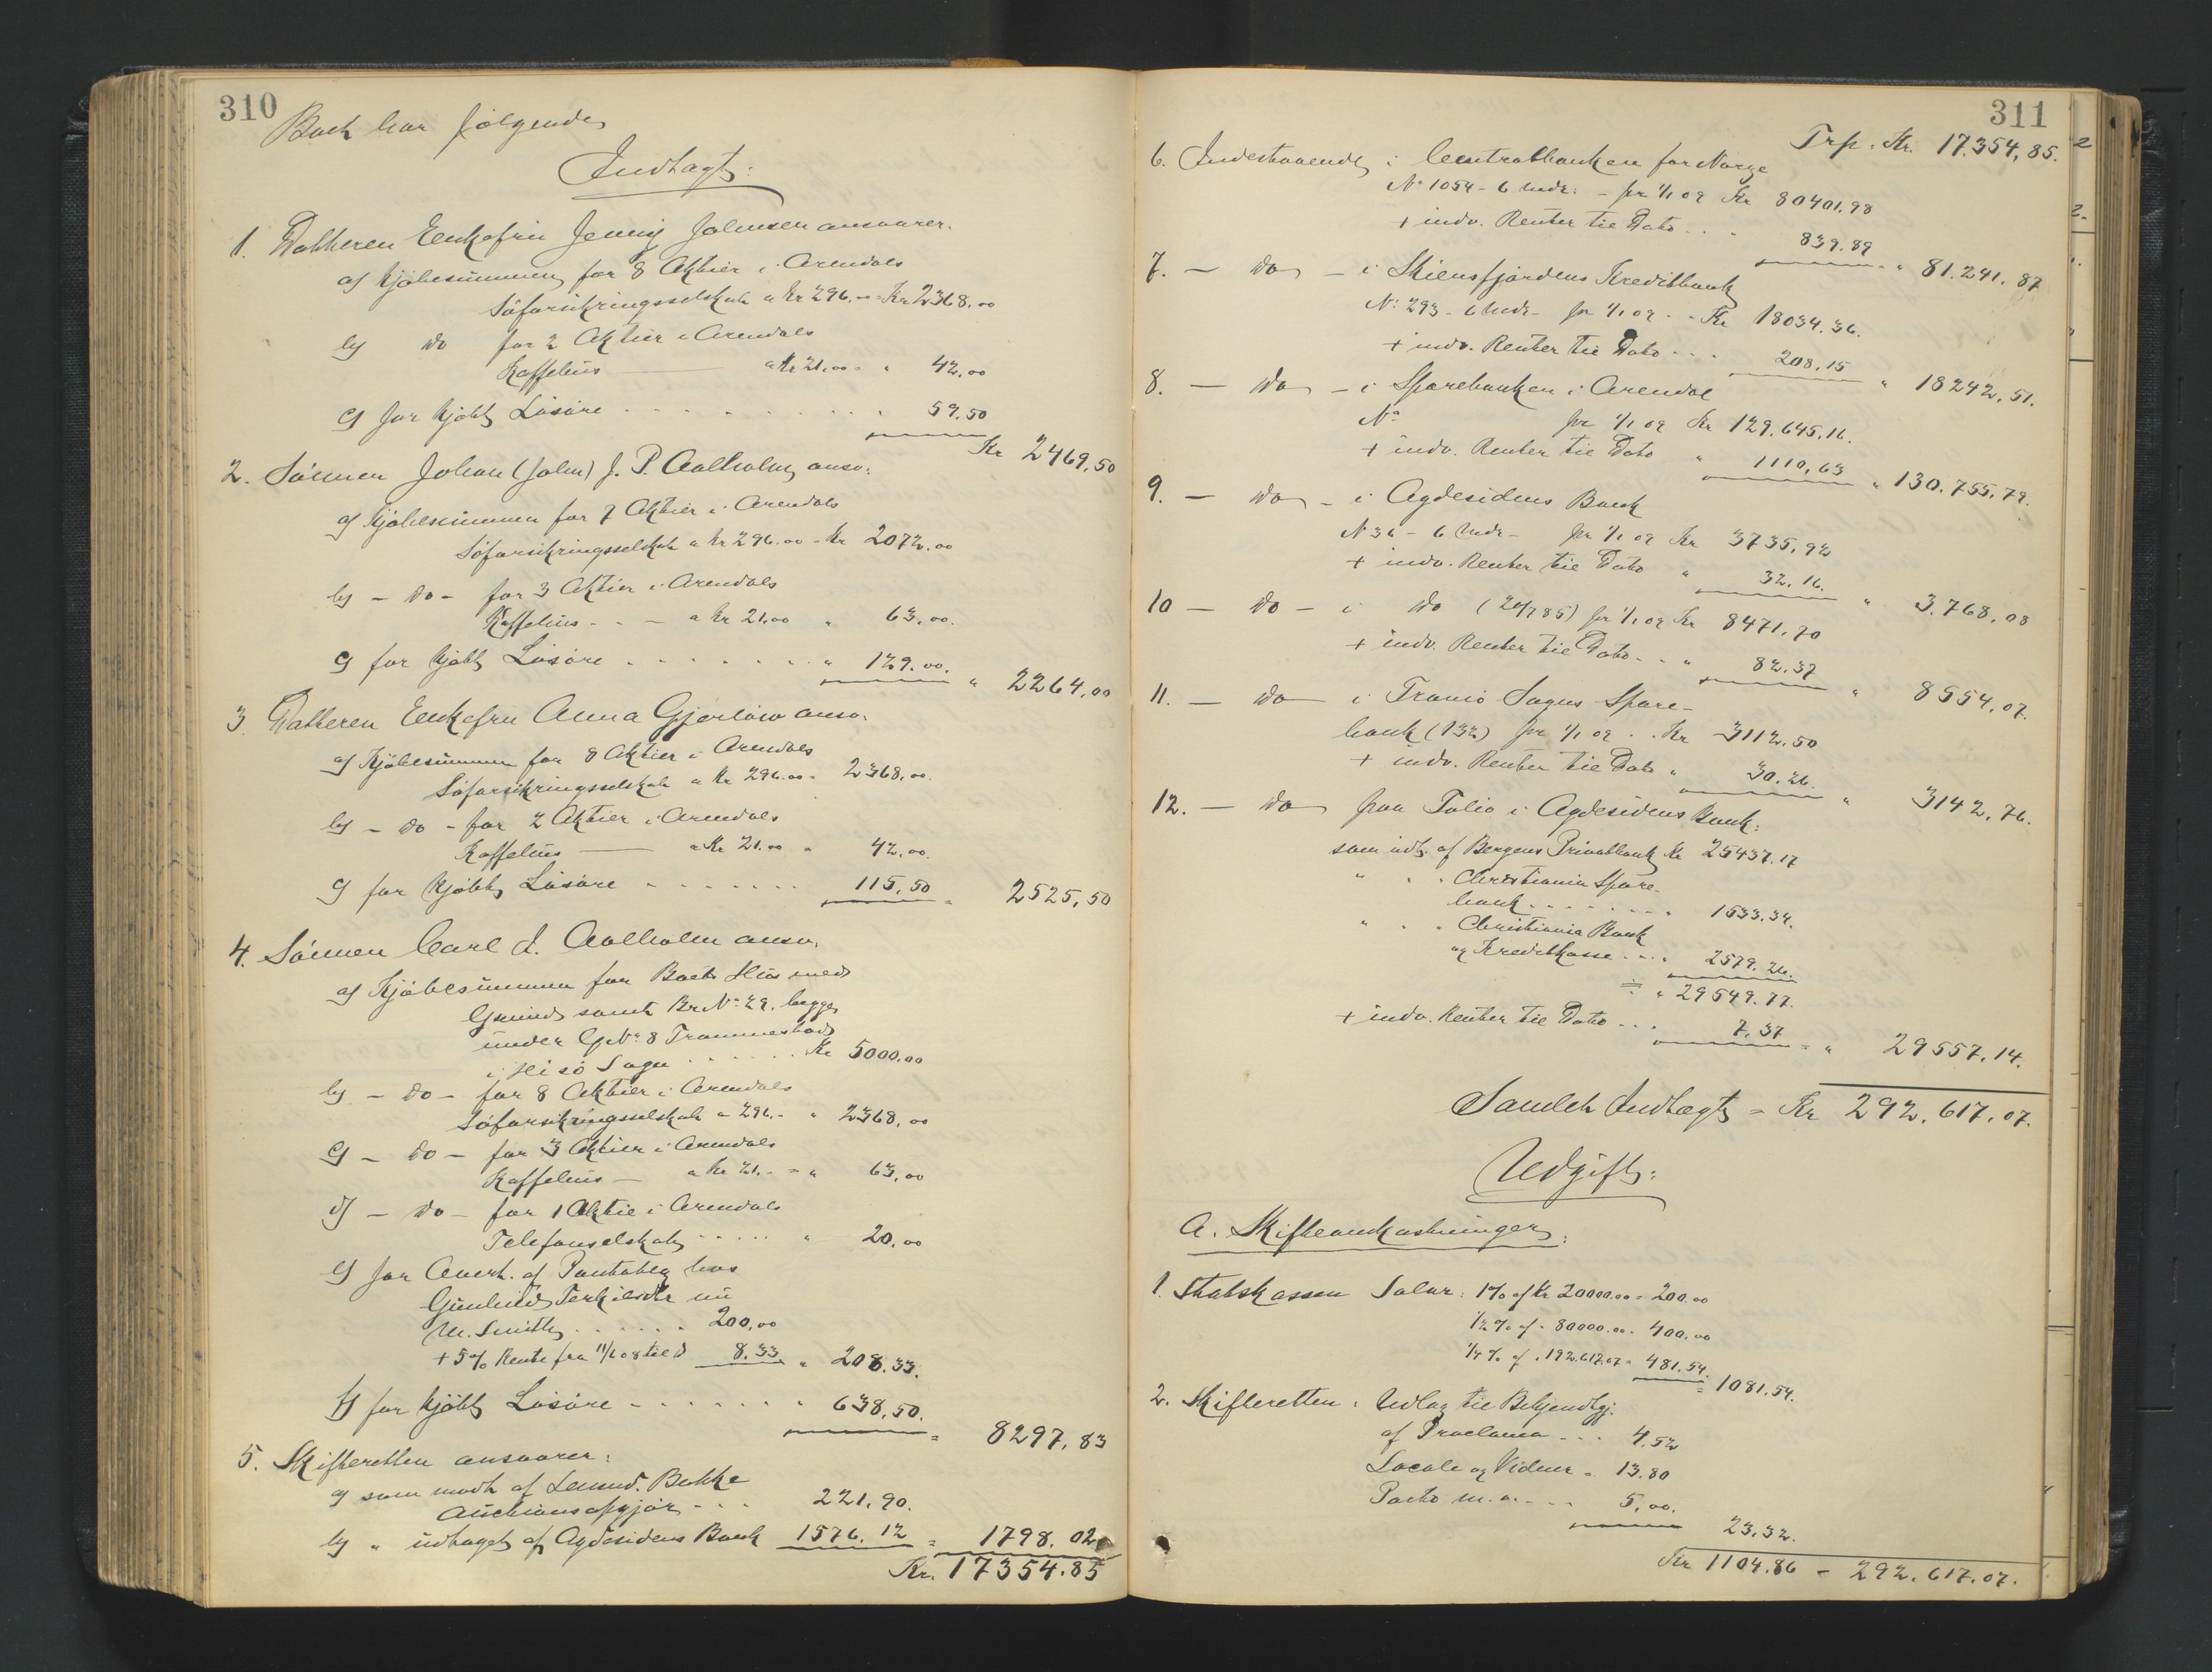 310
Boet har følgende
Indtægt:
1. Datteren Enkefru Jenny Johnsen ansvarer.
a) Kjøbesummen for 8 Aktier i Arendals
Søforsikringsselskab a Kr 296.00 = Kr 2368.00
b) do for 2 Aktier i Arendals
Kaffehus a Kr 21.00 = " 42.00
c) for kjøbt Løsøre . . . . . . . . . . " 59.50
Kr 2469,50
2. Sønnen Johan (John) J. P. Aalholm ansv:
a) Kjøbesummen for 7 Aktier i Arendals
Søforsikringsselskab a Kr 296.00 - Kr 2072.00
b) - do - for 3 Aktier i Arendals
Kaffehus - . - a Kr 21.00 " 63,00.
c) for kjøbt Løsøre . . . . . . . . " 129.00. " 2264,00
3. Datteren Enkefru Anna Gjerløw ansv.
a) Kjøbesummen for 8 Aktier i Arendals
Søforsikringsselskab a Kr 296.00 = 2368,00.
b) - do - for 2 Aktier i Arendals
Kaffehus a Kr 21.00 = 42,00.
c) for kjøbt Løsøre . . . . . . . 115,50 = 2525,50
4. Sønnen Carl J. Aalholm ansv.
a) Kjøbesummen for Boets Hus med
Grund samt Br.No 29, begge
under G.No 8 Trommestad
i Hisø Sogn . . . . . . Kr 5000.00
b) - do - for 8 Aktier i Arendals
Søforsikringsselskab a 296.- " 2368,00
c) - do - for 3 Aktier i Arendals
Kaffehus - a Kr 21.- = " 63,00
d) - do - for 1 Aktie i Arendals
Telefonselskab . . . . . " 20,00
e) for Overt. af Pantobl. hos
M. Smith . . . . . . 200,00
+ 5% Rente fra 11/6 08 til d 8.33 " 208.33.
f) for kjøbt Løsøre - . . . . . . " 638,50. = 8297,83
5. Skifteretten ansvarer:
a) som modt af Lensmd. Bakke
Auctionsopgjør - . . 221,90.
b) " udtaget af Agdesidens Bank 1576.12 = 1798.02
Kr. 17354.85
311
Trp. Kr. 17.354,85.
6. Indestaaende i Centralbanken for Norge
No 1054 - 6 Mdr: - pr 1/1 09 Kr 80401.98
+ indv. Renter til Dato . . . 839.89 " 81.241.87
7. - do - i Skiensfjordens Kreditbank
No 293 - 6 Mdr - pr 1/1 09 . - Kr 18034.36.
+ indv. Renter til Dato . . . 208,15 " 18242,51.
8. - do - i Sparebanken i Arendal
No pr 1/1 09 Kr 129.645,16.
+ indv. Renter til Dato " 1110,63 " 130.755,79.
9. - do - i Agdesidens Bank
N 36 - 6 Mdr - pr 1/1 09 Kr 3735,92
+ indv. Renter til Dato " 32.16. " 3.768,08
10 - do - i do (20/785) pr 1/1 09 Kr 8471,70
+ indv. Renter til Dato - . " 82.37 " 8554,07.
11. - do i Tromø Sogns Spare-
bank (132) pr 1/1 09 . . Kr 3112,50
+ indv. Renter til Dato " 30.26. " 3142,76.
12. - do paa Folio i Agdesidens Bank:
som udb. af Bergens Privatbank Kr 25437.17
" . . Christiania Spare-
bank . . . . . . . . 1533.34.
" . . Christiania Bank
og Kreditkasse . . . 2579.26.
= " 29549.77.
+ indv. Renter til Dato . . . 7,37 = " 29557,14.
Samlet Indtægt = Kr 292.617.07.
Udgift:
A. Skifteomkostninger:
1. Statskassen Salær: 1% af Kr 20000.00 = 200.00
1/2 % af - 80000.00 - 400.00
1/4 % af . 192.617.07 = 481.54. = 1081,54.
2. Skifteretten: Udlæg til Bekjendtgj.
af Proclama - . . 4,52
Locale og Vidner = 13.80
Porto m.v. - - - 5,00. 23,32.
Kr 1104.86 - 292.617.07.